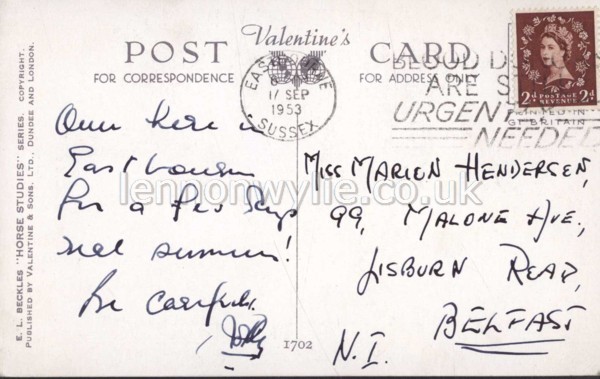 POST Valentine's CARD
FOR CORRESPONDENCE FOR ADDRESS ONLY
EASTBOURNE
17 SEP
1953
SUSSEX
BLOOD D
ARE S
URGENT
NEEDED
PRINTED IN
GT BRITAIN
2d POSTAGE REVENUE 2d
here in
Eastbourne
for a few days
summer!
Be careful.
Miss Marion Hendersen,
99, Malone Ave,
Lisburn Road,
Belfast
N.I.
1702
E. L. BECKLES "HORSE STUDIES" SERIES. COPYRIGHT.
PUBLISHED BY VALENTINE & SONS, LTD., DUNDEE AND LONDON.
lennonwylie.co.uk